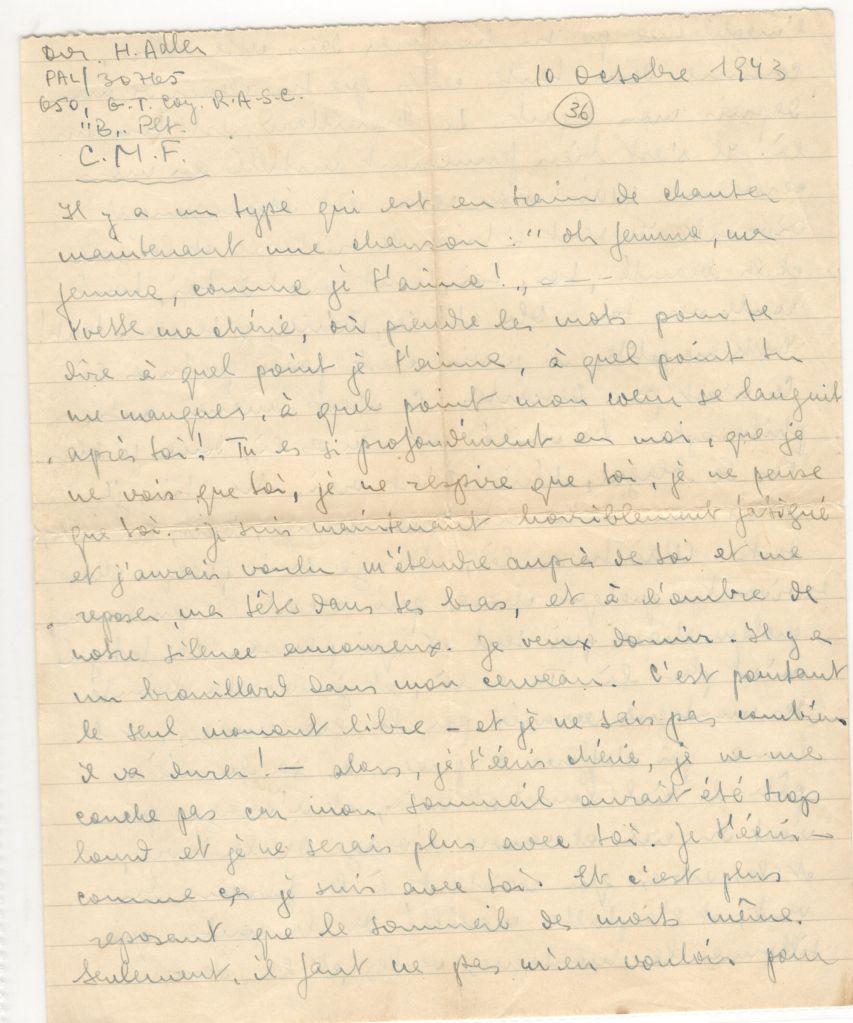 Dvr. H. Adler
PAL/30765
650, G.T. Coy. R.A.S.C.
"B" Plt.
C.M.F.
10 Octobre 1943
36
Il y a un type qui est en train de chanter
maintenant une chanson : "Oh femme, ma
femme, comme je t'aime!" — — —
Yvette ma chérie, où prendre les mots pour te
dire à quel point je t'aime, à quel point tu
me manques, à quel point mon coeur se languit
après toi! Tu es si profondément en moi, que je
ne vois que toi, je ne respire que toi, je ne pense
que toi. Je suis maintenant horriblement fatigué
et j'aurais voulu m'étendre auprès de toi et me
reposer, ma tête dans tes bras, et à l'ombre de
notre silence amoureux. Je veux dormir. Il y a
un brouillard dans mon cerveau. C'est pourtant
le seul moment libre - et je ne sais pas combien
il va durer! — alors, je t'écris chérie, je ne me
couche pas car mon sommeil aurait été trop
lourd et je ne serais plus avec toi. Je t'écris -
comme ça je suis avec toi. Et c'est plus
reposant que le sommeil des morts même.
Seulement, il faut ne pas m'en vouloir pour